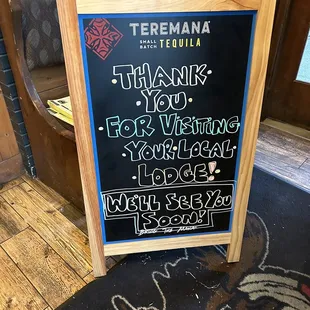 TEREMANA
SMALL BATCH TEQUILA
THANK
YOU
FOR VISITING
YOUR LOCAL
LODGE!
WE'LL SEE YOU
SOON!